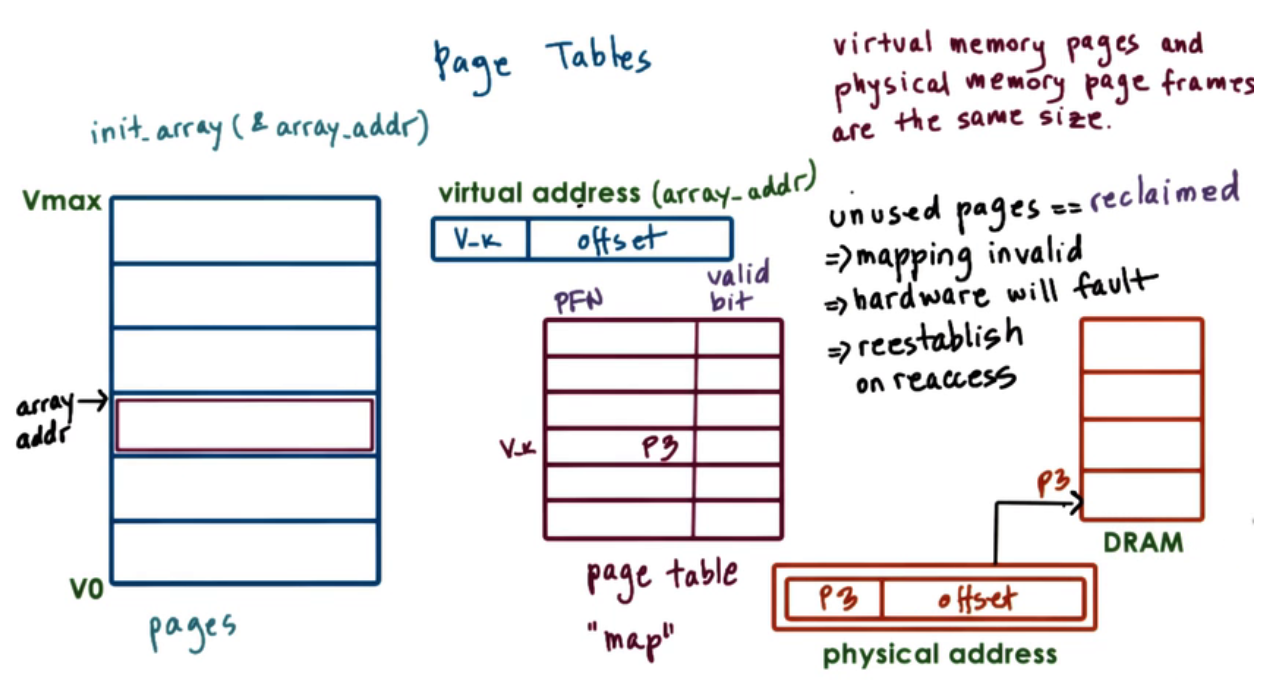 Page Tables
virtual memory pages and
physical memory page frames
are the same size.
init_array (& array_addr)
Vmax
array
addr
V0
pages
virtual address (array_addr)
V_k offset
PFN
valid
bit
V_k P3
page table
"map"
unused pages == reclaimed
=> mapping invalid
=> hardware will fault
=> reestablish
on reaccess
P3
DRAM
P3 offset
physical address